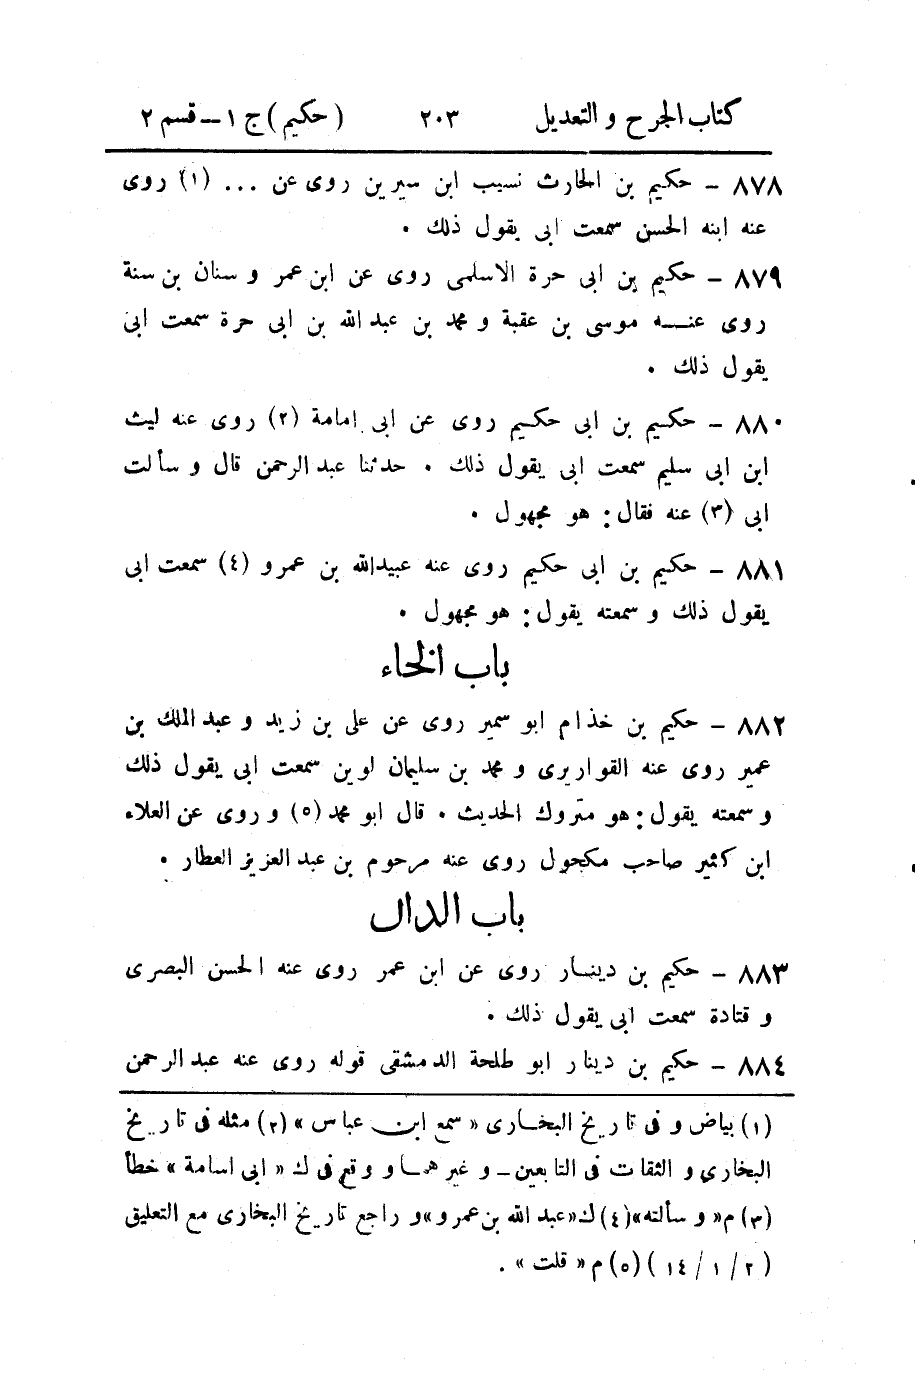 كتاب الجرح و التعديل ٢٠٣ (حكيم) ج ١ – قسم ٢
٨٧٨ – حكيم بن الحارث نسيب ابن سيرين روى عن ... (١) روى
عنه ابنه الحسن سمعت ابى يقول ذلك .
٨٧٩ – حكيم بن ابى حرة الاسلمى روى عن ابن عمر و سنان بن سنة
روى عنه موسى بن عقبة و محمد بن عبد الله بن ابى حرة سمعت ابى
يقول ذلك .
٨٨٠ – حكيم بن ابى حكيم روى عن ابى امامة (٢) روى عنه ليث
ابن ابى سليم سمعت ابى يقول ذلك . حدثنا عبد الرحمن قال و سألت
ابى (٣) عنه فقال : هو مجهول .
٨٨١ – حكيم بن ابى حكيم روى عنه عبيدالله بن عمرو (٤) سمعت ابى
يقول ذلك و سمعته يقول : هو مجهول .
باب الخاء
٨٨٢ – حكيم بن خذام ابو سمير روى عن على بن زيد و عبد الملك بن
عمير روى عنه القواريرى و محمد بن سليمان لوين سمعت ابى يقول ذلك
و سمعته يقول : هو متروك الحديث . قال ابو محمد (٥) و روى عن العلاء
ابن كثير صاحب مكحول روى عنه مرحوم بن عبد العزيز العطار .
باب الدال
٨٨٣ – حكيم بن دينار روى عن ابن عمر روى عنه الحسن البصرى
و قتادة سمعت ابى يقول ذلك .
٨٨٤ – حكيم بن دينار ابو طلحة الدمشقى قوله روى عنه عبد الرحمن
(١) بياض و فى تاريخ البخارى « سمع ابن عباس » (٢) مثله فى تاريخ
البخارى و الثقات فى التابعين – و غيرهما و وقع فى ك « ابى اسامة » خطأ
(٣) م « و سألته » (٤) ك « عبد الله بن عمرو » و راجع تاريخ البخارى مع التعليق
(٢ / ١ / ١٤) (٥) م « قلت » .